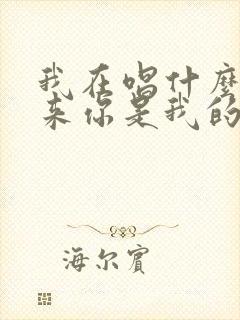 我在唱什麼
来你是我的
海尔賓